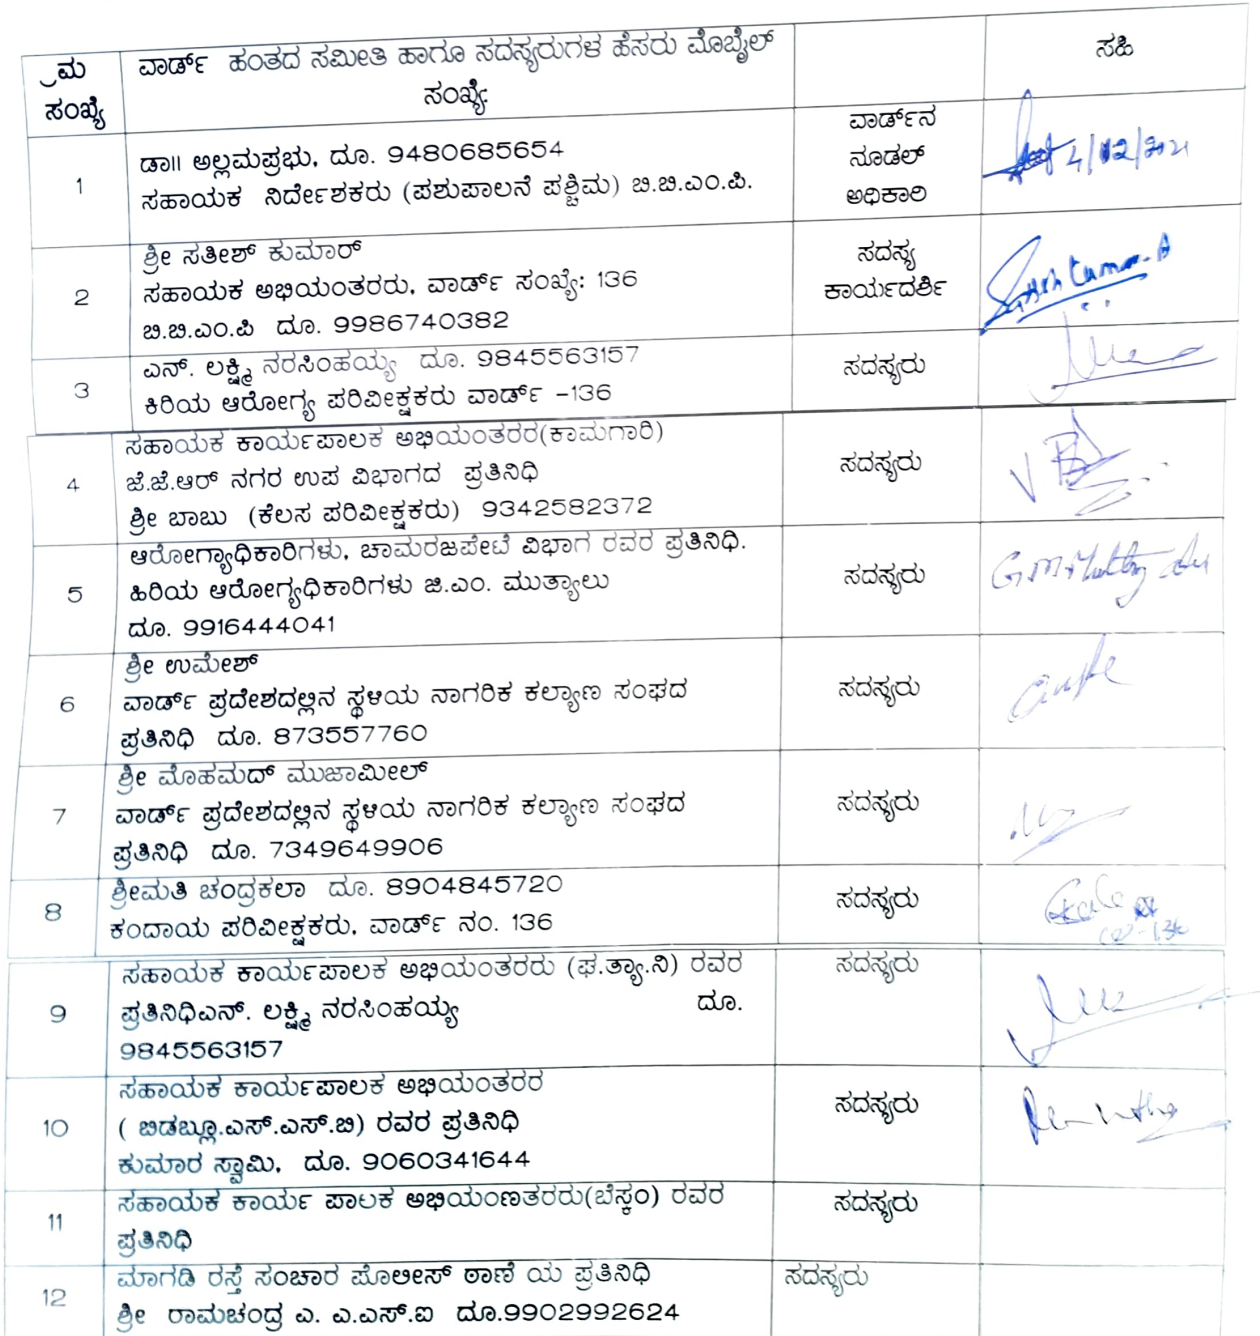 ್ರಮ ಸಂಖ್ಯೆ ವಾರ್ಡ್ ಹಂತದ ಸಮೀತಿ ಹಾಗೂ ಸದಸ್ಯರುಗಳ ಹೆಸರು ಮೊಬೈಲ್ ಸಂಖ್ಯೆ: ಸಹಿ
1
ಡಾ॥ ಅಲ್ಲಮಪ್ರಭು, ದೂ. 9480685654
ಸಹಾಯಕ ನಿರ್ದೇಶಕರು (ಪಶುಪಾಲನೆ ಪಶ್ಚಿಮ) ಬಿ.ಬಿ.ಎಂ.ಪಿ.
ವಾರ್ಡ್‌ನ
ನೂಡಲ್
ಅಧಿಕಾರಿ
4/02/2021
2
ಶ್ರೀ ಸತೀಶ್ ಕುಮಾರ್
ಸಹಾಯಕ ಅಭಿಯಂತರರು, ವಾರ್ಡ್ ಸಂಖ್ಯೆ: 136
ಬಿ.ಬಿ.ಎಂ.ಪಿ ದೂ. 9986740382
ಸದಸ್ಯ
ಕಾರ್ಯದರ್ಶಿ
3
ಎನ್. ಲಕ್ಷ್ಮಿ ನರಸಿಂಹಯ್ಯ ದೂ. 9845563157
ಕಿರಿಯ ಆರೋಗ್ಯ ಪರಿವೀಕ್ಷಕರು ವಾರ್ಡ್ -136
ಸದಸ್ಯರು
4
ಸಹಾಯಕ ಕಾರ್ಯಪಾಲಕ ಅಭಿಯಂತರರ(ಕಾಮಗಾರಿ)
ಜೆ.ಜೆ.ಆರ್ ನಗರ ಉಪ ವಿಭಾಗದ ಪ್ರತಿನಿಧಿ
ಶ್ರೀ ಬಾಬು (ಕೆಲಸ ಪರಿವೀಕ್ಷಕರು) 9342582372
ಸದಸ್ಯರು
5
ಆರೋಗ್ಯಾಧಿಕಾರಿಗಳು, ಚಾಮರಜಪೇಟೆ ವಿಭಾಗ ರವರ ಪ್ರತಿನಿಧಿ.
ಹಿರಿಯ ಆರೋಗ್ಯಧಿಕಾರಿಗಳು ಜಿ.ಎಂ. ಮುತ್ಯಾಲು
ದೂ. 9916444041
ಸದಸ್ಯರು
6
ಶ್ರೀ ಉಮೇಶ್
ವಾರ್ಡ್ ಪ್ರದೇಶದಲ್ಲಿನ ಸ್ಥಳಿಯ ನಾಗರಿಕ ಕಲ್ಯಾಣ ಸಂಘದ
ಪ್ರತಿನಿಧಿ ದೂ. 873557760
ಸದಸ್ಯರು
7
ಶ್ರೀ ಮೊಹಮದ್ ಮುಜಾಮೀಲ್
ವಾರ್ಡ್ ಪ್ರದೇಶದಲ್ಲಿನ ಸ್ಥಳಿಯ ನಾಗರಿಕ ಕಲ್ಯಾಣ ಸಂಘದ
ಪ್ರತಿನಿಧಿ ದೂ. 7349649906
ಸದಸ್ಯರು
8
ಶ್ರೀಮತಿ ಚಂದ್ರಕಲಾ ದೂ. 8904845720
ಕಂದಾಯ ಪರಿವೀಕ್ಷಕರು, ವಾರ್ಡ್ ನಂ. 136
ಸದಸ್ಯರು
9
ಸಹಾಯಕ ಕಾರ್ಯಪಾಲಕ ಅಭಿಯಂತರರು (ಘ.ತ್ಯಾ.ನಿ) ರವರ
ಪ್ರತಿನಿಧಿಎನ್. ಲಕ್ಷ್ಮಿ ನರಸಿಂಹಯ್ಯ ದೂ.
9845563157
ಸದಸ್ಯರು
10
ಸಹಾಯಕ ಕಾರ್ಯಪಾಲಕ ಅಭಿಯಂತರರ
( ಬಿಡಬ್ಲೂ.ಎಸ್.ಎಸ್.ಬಿ) ರವರ ಪ್ರತಿನಿಧಿ
ಕುಮಾರ ಸ್ವಾಮಿ, ದೂ. 9060341644
ಸದಸ್ಯರು
11
ಸಹಾಯಕ ಕಾರ್ಯ ಪಾಲಕ ಅಭಿಯಂಣತರರು(ಬೆಸ್ಕಂ) ರವರ
ಪ್ರತಿನಿಧಿ
ಸದಸ್ಯರು
12
ಮಾಗಡಿ ರಸ್ತೆ ಸಂಚಾರ ಪೊಲೀಸ್ ಠಾಣೆ ಯ ಪ್ರತಿನಿಧಿ
ಶ್ರೀ ರಾಮಚಂದ್ರ ಎ. ಎ.ಎಸ್.ಐ ದೂ.9902992624
ಸದಸ್ಯರು